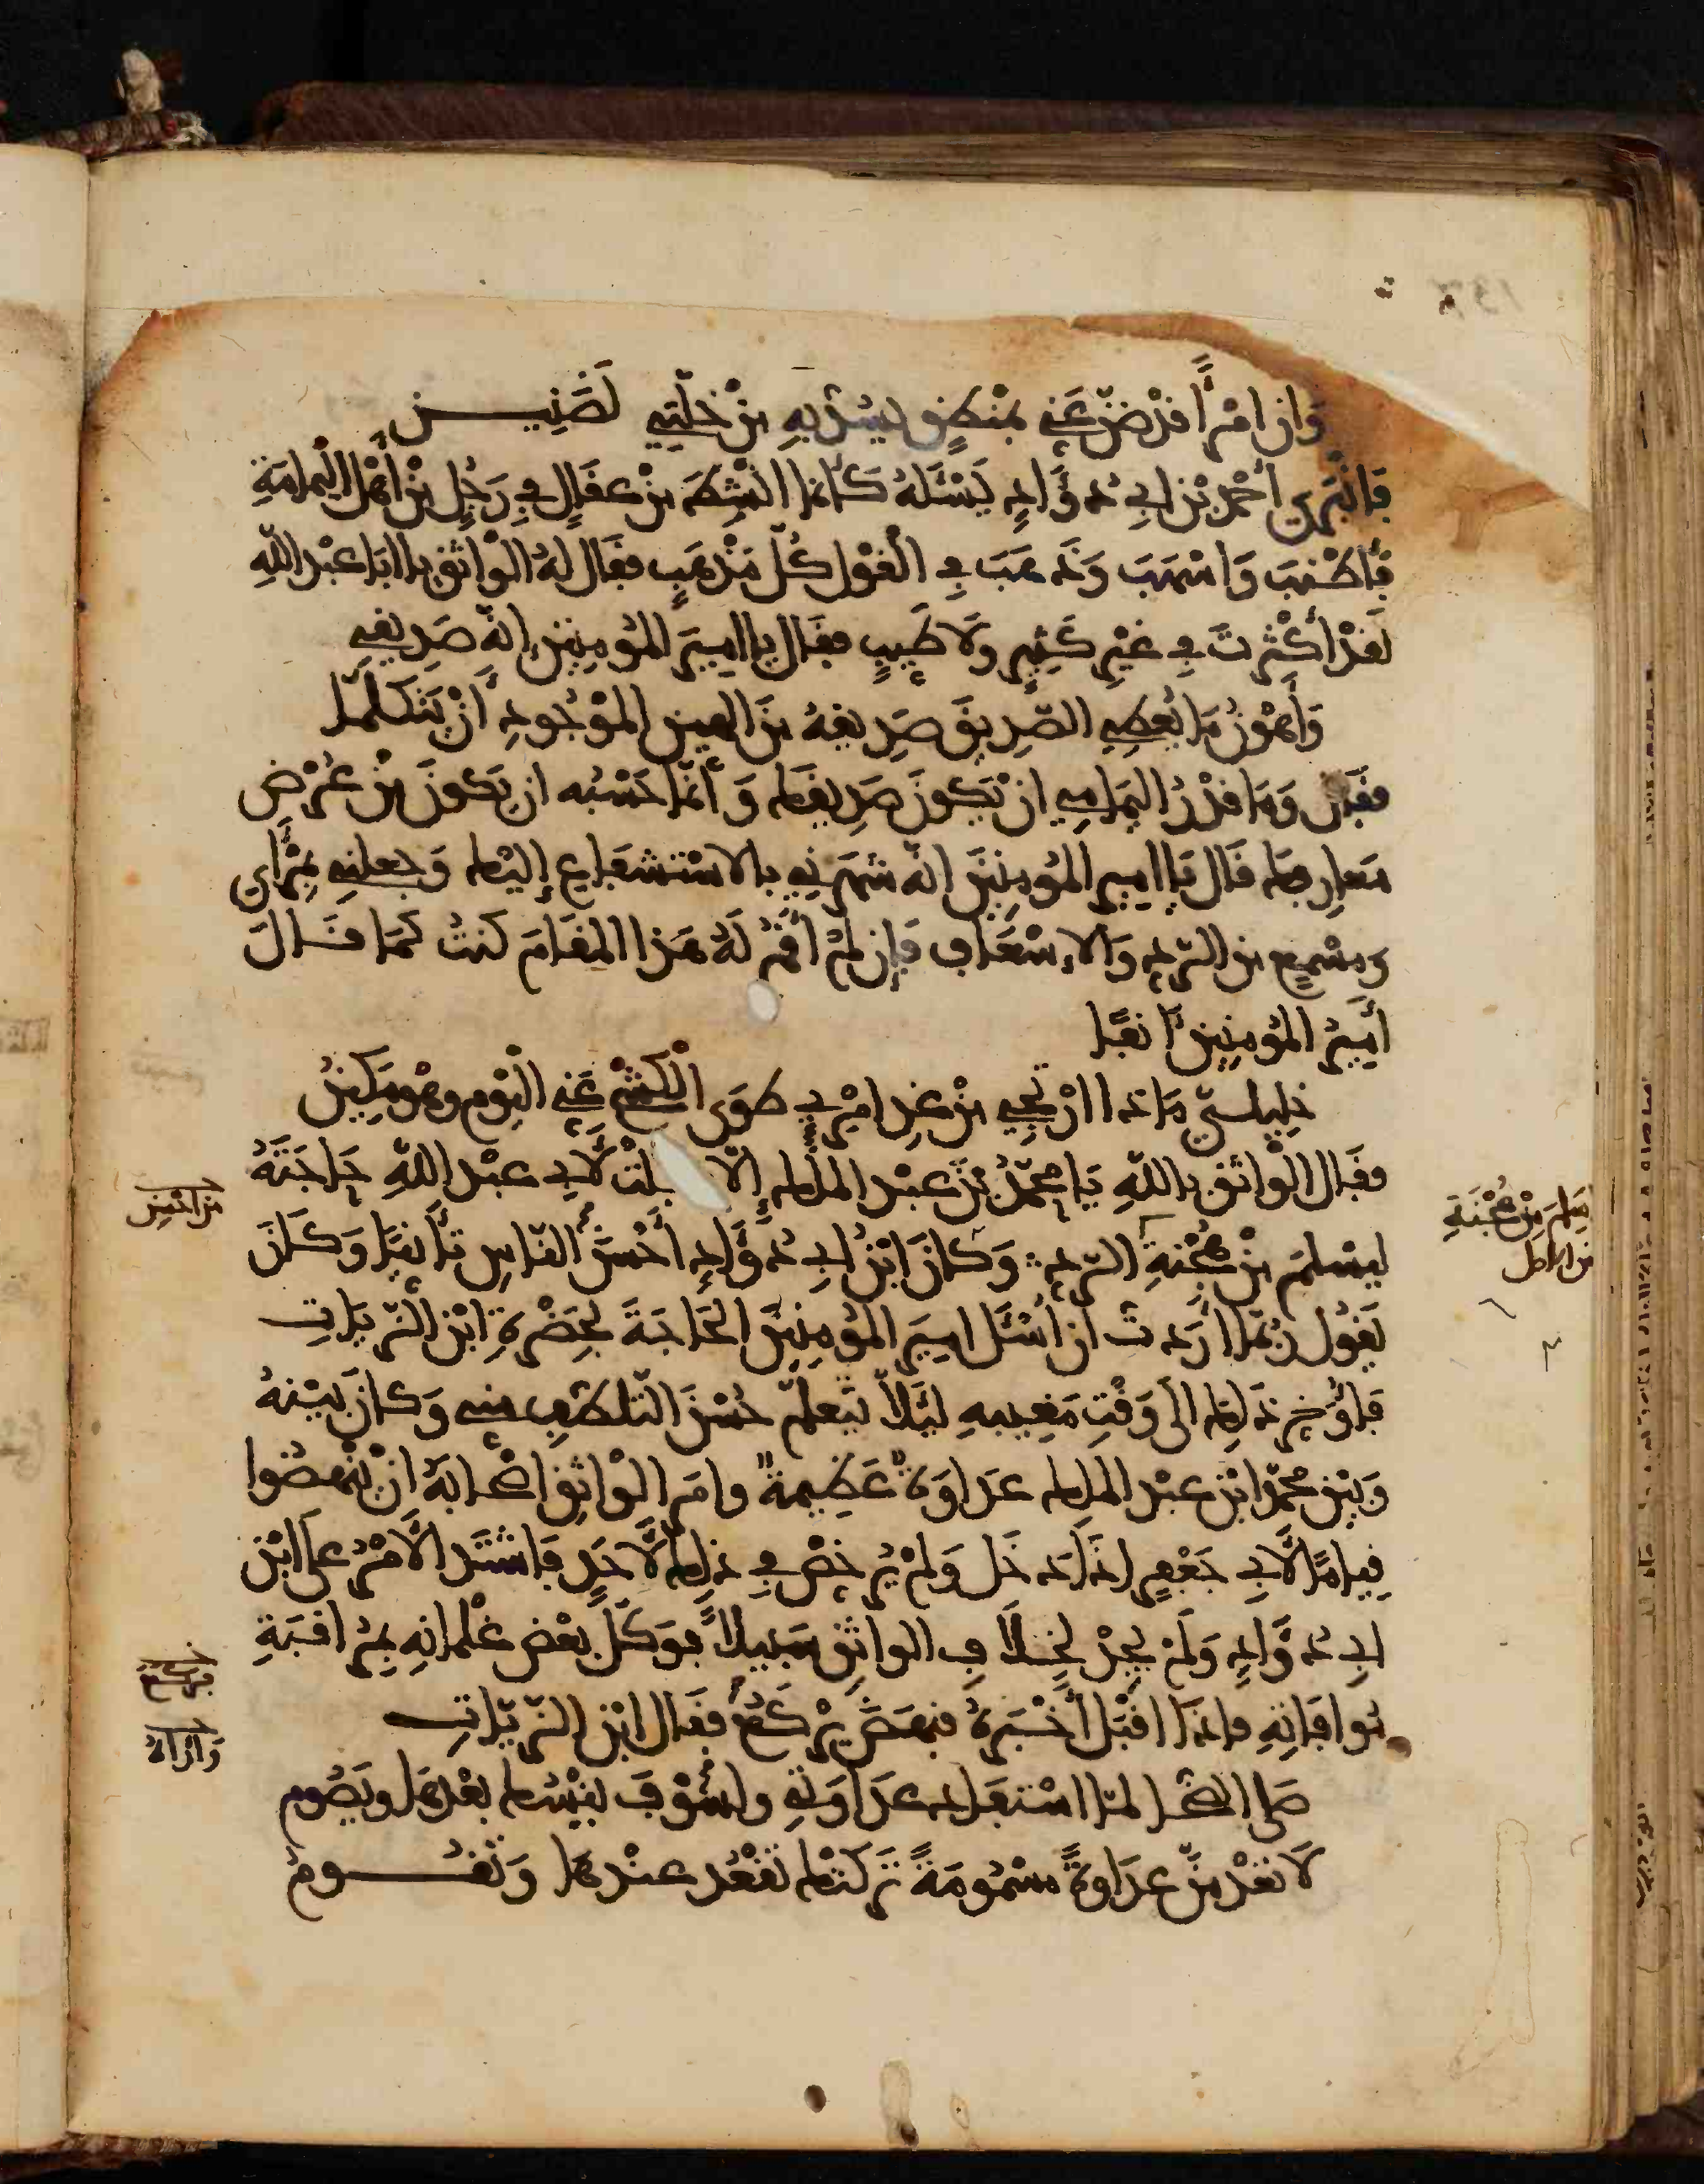 وَان امْرَأً قدْ ضَنَّ عَنِّي بمنْطِقٍ يسُدُّ بهِ مِنْ خَلَّتِي لَضَنِيـــن
فَانْبَرى أحْمد بْن ابِي دُؤَادٍ يَسْئَلهُ كَأنما انْشِطَ مِنْ عقَالٍ فِي رَجُلٍ مِنْ أهْلِ الْيَمامَةِ
فأطْنَبَ وَاسْهَبَ وَذَهَبَ فِي الْقَوْلِ كُلَّ مَذْهَبٍ فقال لهُ الْوَاثق يا ابَا عبْد اللهِ
لَقدْ أَكْثَرْتَ فِي غيْرِ كَثِيرٍ وَلَا طَيِبٍ فقَال يا امِيرَ المُومِنِين إنهُ صَدِيقِي
وَأهْوَنُ مَا يُعْطِي الصَّدِيقُ صَدِيقهُ مِنَ الهيّن المَوْجُودِ أَنْ يَتَكَلَّمَا
فقَال وَمَا قدْرُ اليَمَامِي ان يَكونَ صَدِيقَك وَأنّما حَسْبُه ان يكونَ مِنْ عُرْضِ
مَعَارِفِك قَال يَا امِير المُومِنِينَ إنهُ شهَرَنِي بالاسْتشفَاعِ إليْك وَجعلنِي بِمَرْأى
ومسْمعٍ من الرّدِ وَالاسْعَافِ فَإن لمْ أقُمْ لهُ هَذا المقَامَ كنتُ كمَا قَــالَ
أمِيرُ المُومنِين آنفًا
خلِيلَيّ مَاذا ارْتجِي مِنْ غدِ امْرئ طَوَى الْكشْحَ عَنِّي الْيَوم وهْو مَكِينُ
فقَال الْوَاثق بالله يَا محمّدُ بْنَ عبْد الملك إلّا بلّغْتَ لِأبِي عبْد اللهِ حَاجَتَهُ
ليسْلمَ مِنْ هُجْنةِ الرّدِ وَكانَ ابْنُ ابِي دُؤَادٍ أحْسَنَ النّاسِ تأَتّيًا وَكَانَ
يَقُول ربّما أرَدتُ ان أسْئَل امِيرَ المُومِنِينَ الحَاجَةَ بحَضْرَةِ ابْن الزّيّاتِ
فَاؤَخِّر ذَلِك الى وَقْتِ مَغِيبهِ لِئَلاّ يَتَعلّم حُسْنَ التّلطّفِ مني وَكانَ بيْنهُ
وَبيْن محمّد ابْن عبْد الملِك عدَاوَةٌ عَظِيمةٌ وامَر الْوَاثِق أصْحابَهُ انْ ينْهَضُوا
قِيامًا لأبِي جَعْفرٍ إذَا دَخَل وَلَمْ يُرَخِّصْ فِي ذلِك لأَحَدٍ فَاشْتَدّ الأمْرُ على ابْن
ابِي دُؤَادٍ وَلَمْ يجِدْ لخِلَافِ الواثِق سَبِيلًا فوَكّلَ بعْض غلْمانِهِ بمُرَاقبَةِ
مُوافاتِهِ فاذَا اقْبَلَ أخْبَرَهُ فنهَضَ يرْكَعُ فقَال ابْن الزّيّاتِ
صلى الضّحى لمّا اسْتفَاد عدَاوَتِي واسُوْف ينْسُك بعْدهَا ويَصُوم
لَا تعْدمَنّ عدَاوةً مسْمُومَةً تَركتْك تقْعُد عندهَا وَتقُــــوم
مِلمَ مِنْ هُجْنَةِ
من الاصل